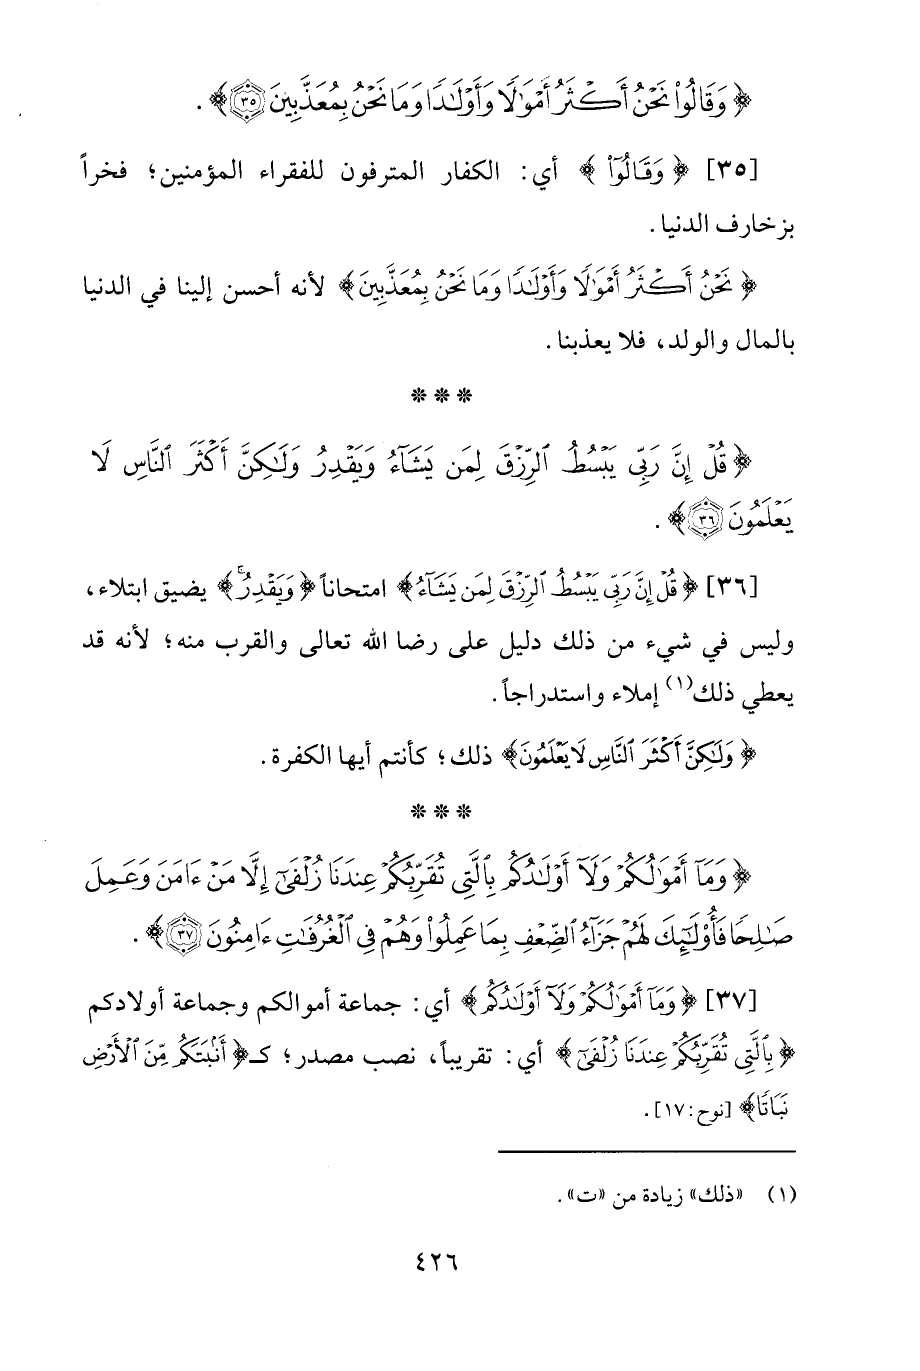 ﴿وَقَالُوا۟ نَحْنُ أَكْثَرُ أَمْوَٰلًا وَأَوْلَٰدًا وَمَا نَحْنُ بِمُعَذَّبِينَ ٣٥﴾.
[٣٥] ﴿وَقَالُوا۟﴾ أي: الكفار المترفون للفقراء المؤمنين؛ فخراً
بزخارف الدنيا.
﴿نَحْنُ أَكْثَرُ أَمْوَٰلًا وَأَوْلَٰدًا وَمَا نَحْنُ بِمُعَذَّبِينَ﴾ لأنه أحسن إلينا في الدنيا
بالمال والولد، فلا يعذبنا.
* * *
﴿قُلْ إِنَّ رَبِّى يَبْسُطُ ٱلرِّزْقَ لِمَن يَشَآءُ وَيَقْدِرُ وَلَٰكِنَّ أَكْثَرَ ٱلنَّاسِ لَا
يَعْلَمُونَ ٣٦﴾.
[٣٦] ﴿قُلْ إِنَّ رَبِّى يَبْسُطُ ٱلرِّزْقَ لِمَن يَشَآءُ﴾ امتحاناً ﴿وَيَقْدِرُ ۚ﴾ يضيق ابتلاء،
وليس في شيء من ذلك دليل على رضا الله تعالى والقرب منه؛ لأنه قد
يعطي ذلك(١) إملاء واستدراجاً.
﴿وَلَٰكِنَّ أَكْثَرَ ٱلنَّاسِ لَا يَعْلَمُونَ﴾ ذلك؛ كأنتم أيها الكفرة.
* * *
﴿وَمَآ أَمْوَٰلُكُمْ وَلَآ أَوْلَٰدُكُم بِٱلَّتِى تُقَرِّبُكُمْ عِندَنَا زُلْفَىٰٓ إِلَّا مَنْ ءَامَنَ وَعَمِلَ
صَٰلِحًا فَأُو۟لَٰٓئِكَ لَهُمْ جَزَآءُ ٱلضِّعْفِ بِمَا عَمِلُوا۟ وَهُمْ فِى ٱلْغُرُفَٰتِ ءَامِنُونَ ٣٧﴾.
[٣٧] ﴿وَمَآ أَمْوَٰلُكُمْ وَلَآ أَوْلَٰدُكُم﴾ أي: جماعة أموالكم وجماعة أولادكم
﴿بِٱلَّتِى تُقَرِّبُكُمْ عِندَنَا زُلْفَىٰٓ﴾ أي: تقريباً، نصب مصدر؛ كـ﴿أَنۢبَتَكُم مِّنَ ٱلْأَرْضِ
نَبَاتًا﴾ [نوح: ١٧].
(١) «ذلك» زيادة من «ت».
٤٢٦